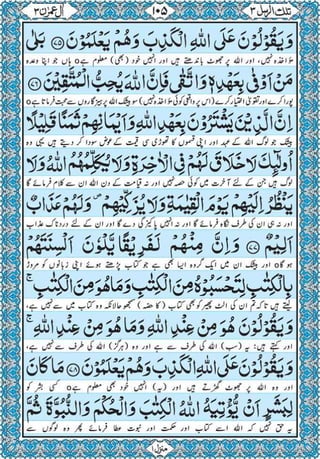 تلك الرسل ٣ ١٠٥ اٰل عمرٰن ٣
وَيَقُوْلُوْنَ عَلَى اللّٰهِ الْكَذِبَ وَهُمْ يَعْلَمُوْنَ ﴿٧٥﴾ بَلٰى
مؤاخذہ نہیں، اور اللہ پر جھوٹ باندھتے ہیں اور انہیں خود (بھی) معلوم ہے ہاں جو اپنا وعدہ
مَنْ اَوْفٰى بِعَهْدِهٖ وَاتَّقٰى فَاِنَّ اللّٰهَ يُحِبُّ الْمُتَّقِيْنَ ﴿٧٦﴾
پورا کرے اور تقویٰ اختیار کرے (اس پر واقعی کوئی مؤاخذہ نہیں) سو بیشک اللہ پرہیزگاروں سے محبت فرماتا ہے
اِنَّ الَّذِيْنَ يَشْتَرُوْنَ بِعَهْدِ اللّٰهِ وَاَيْمَانِهِمْ ثَمَنًا قَلِيْلًا
بیشک جو لوگ اللہ کے عہد اور اپنی قسموں کا تھوڑی سی قیمت کے عوض سودا کر دیتے ہیں یہی وہ
اُولٰٓئِكَ لَا خَلَاقَ لَهُمْ فِى الْاٰخِرَةِ وَلَا يُكَلِّمُهُمُ اللّٰهُ وَلَا
لوگ ہیں جن کے لئے آخرت میں کوئی حصہ نہیں اور نہ قیامت کے دن اللہ ان سے کلام فرمائے گا
يَنْظُرُ اِلَيْهِمْ يَوْمَ الْقِيٰمَةِ وَلَا يُزَكِّيْهِمْ ۪ وَلَهُمْ عَذَابٌ
اور نہ ہی ان کی طرف نگاہ فرمائے گا اور نہ انہیں پاکیزگی دے گا اور ان کے لئے دردناک عذاب
اَلِيْمٌ ﴿٧٧﴾ وَاِنَّ مِنْهُمْ لَفَرِيْقًا يَّلْوٗنَ اَلْسِنَتَهُمْ
ہو گا اور بیشک ان میں ایک گروہ ایسا بھی ہے جو کتاب پڑھتے ہوئے اپنی زبانوں کو مروڑ
بِالْكِتٰبِ لِتَحْسَبُوْهُ مِنَ الْكِتٰبِ وَمَا هُوَ مِنَ الْكِتٰبِ ۚ
لیتے ہیں تا کہ تم ان کی الٹ پھیر کو بھی کتاب (کا حصہ) سمجھو حالانکہ وہ کتاب میں سے نہیں ہے،
وَيَقُوْلُوْنَ هُوَ مِنْ عِنْدِ اللّٰهِ وَمَا هُوَ مِنْ عِنْدِ اللّٰهِ ۚ
اور کہتے ہیں: یہ (سب) اللہ کی طرف سے ہے اور وہ (ہرگز) اللہ کی طرف سے نہیں ہے،
وَيَقُوْلُوْنَ عَلَى اللّٰهِ الْكَذِبَ وَهُمْ يَعْلَمُوْنَ ﴿٧٨﴾ مَا كَانَ
اور وہ اللہ پر جھوٹ گھڑتے ہیں اور (یہ) انہیں خود بھی معلوم ہے کسی بشر کو
لِبَشَرٍ اَنْ يُّؤْتِيَهُ اللّٰهُ الْكِتٰبَ وَالْحُكْمَ وَالنُّبُوَّةَ ثُمَّ
یہ حق نہیں کہ اللہ اسے کتاب اور حکمت اور نبوت عطا فرمائے پھر وہ لوگوں سے
منزل ١